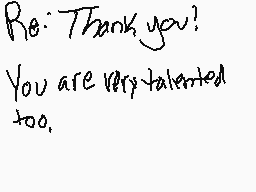 Re: Thank you!
You are very talented
too.